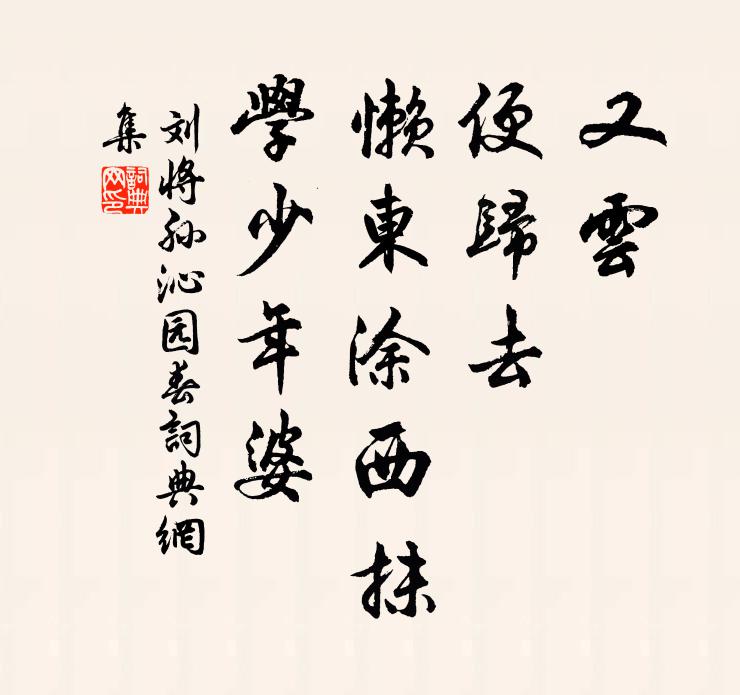 又雲
便歸去
懶東涂西抹
學少年婆
刘將孙沁园春詞典網
集
詞典網印